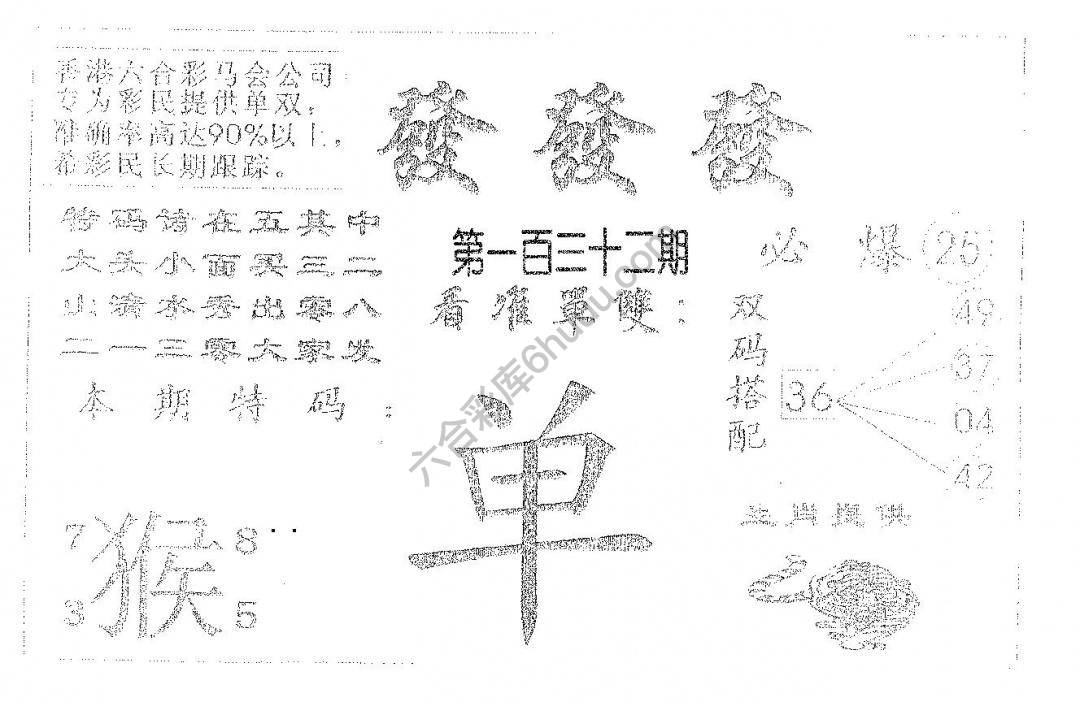 香港六合彩马会公司
专为彩民提供单双,
准确率高达90%以上,
希彩民长期跟踪。
發 發 發
特码诗在五其中
大头小面买三二
山清水秀出零八
二一三零大家发
本期特码:
第一百三十二期
看准單雙:
单
必爆 25
双码搭配
36
49
37
04
42
提供
7 猴 8
3 5
六合彩库6huku.com